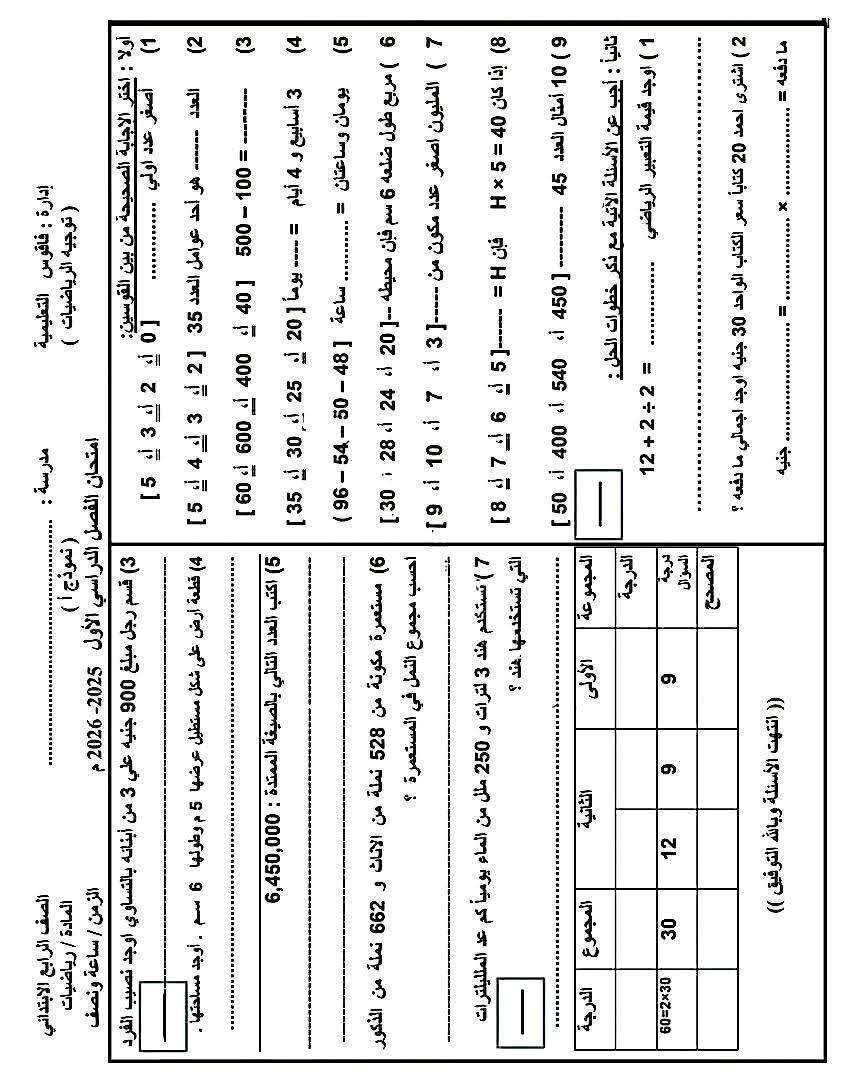 إدارة : فاقوس التعليمية
( توجيه الرياضيات )
مدرسة : ........................
( نموذج أ )
امتحان الفصل الدراسي الأول 2025- 2026 م
الصف الرابع الابتدائي
المادة / رياضيات
الزمن / ساعة ونصف
أولا : اختر الاجابة الصحيحة من بين القوسين:
1) أصغر عدد اولي ............ [ 0 أ، 2 أ، 3 أ، 5 ]
2) العدد ------ هو أحد عوامل العدد 35 [ 2 أ، 3 أ، 4 أ، 5 ]
3) 500 – 100 = -------- [ 40 أ، 400 أ، 600 أ، 60 ]
4) 3 أسابيع و 4 أيام = ---- يوماً [ 20 أ، 25 أ، 30 أ، 35 ]
5) يومان وساعتان = .......... ساعة ( 96 – 54 – 50 – 48 ]
6 ) مربع طول ضلعه 6 سم فإن محيطه -- [ 20 أ، 24 أ، 28 ، 30 ]
7 ) المليون اصغر عدد مكون من ----- [ 3 أ، 7 أ، 10 أ، 9 ]
8) إذا كان H × 5 = 40 فإن H = ----- [ 5 أ، 6 أ، 7 أ، 8 ]
9 ) 10 أمثال العدد 45 --------- [ 450 أ، 540 أ، 400 أ، 50 ]
ثانياً : أجب عن الأسئلة الآتية مع ذكر خطوات الحل :
1 ) اوجد قيمة التعبير الرياضي ............ 12 + 2 ÷ 2 =
........................................
2 ) اشترى احمد 20 كتاباً سعر الكتاب الواحد 30 جنيه اوجد اجمالي ما دفعه ؟
ما دفعه = ............ × ............ = ............ جنيه
3) قسم رجل مبلغ 900 جنيه علي 3 من أبنائه بالتساوي اوجد نصيب الفرد
----------------------------------------
4) قطعة ارض على شكل مستطيل عرضها 5 م وطولها 6 سم . أوجد مساحتها .
........................................
5) اكتب العدد التالي بالصيغة الممتدة : 6,450,000
----------------------------------------
----------------------------------------
6) مستعمرة مكونة من 528 نملة من الاناث و 662 نملة من الذكور
احسب مجموع النمل في المستعمرة ؟
----------------------------------------
7 ) تستخدم هند 3 لترات و 250 ملل من الماء يومياً كم عدد الملليلترات
التي تستخدمها هند ؟
........................................
المجموعة الأولى الثانية المجموع الدرجة
الدرجة
درجة السؤال 9 9 12 30 60=2×30
المصحح
(( انتهت الأسئلة وبالله التوفيق ))